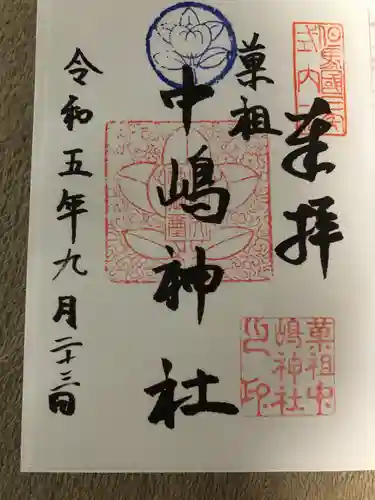 奉拝
但馬國
式内
菓祖
中嶋神社
菓祖中
嶋神社
之印
令和五年九月二十三日